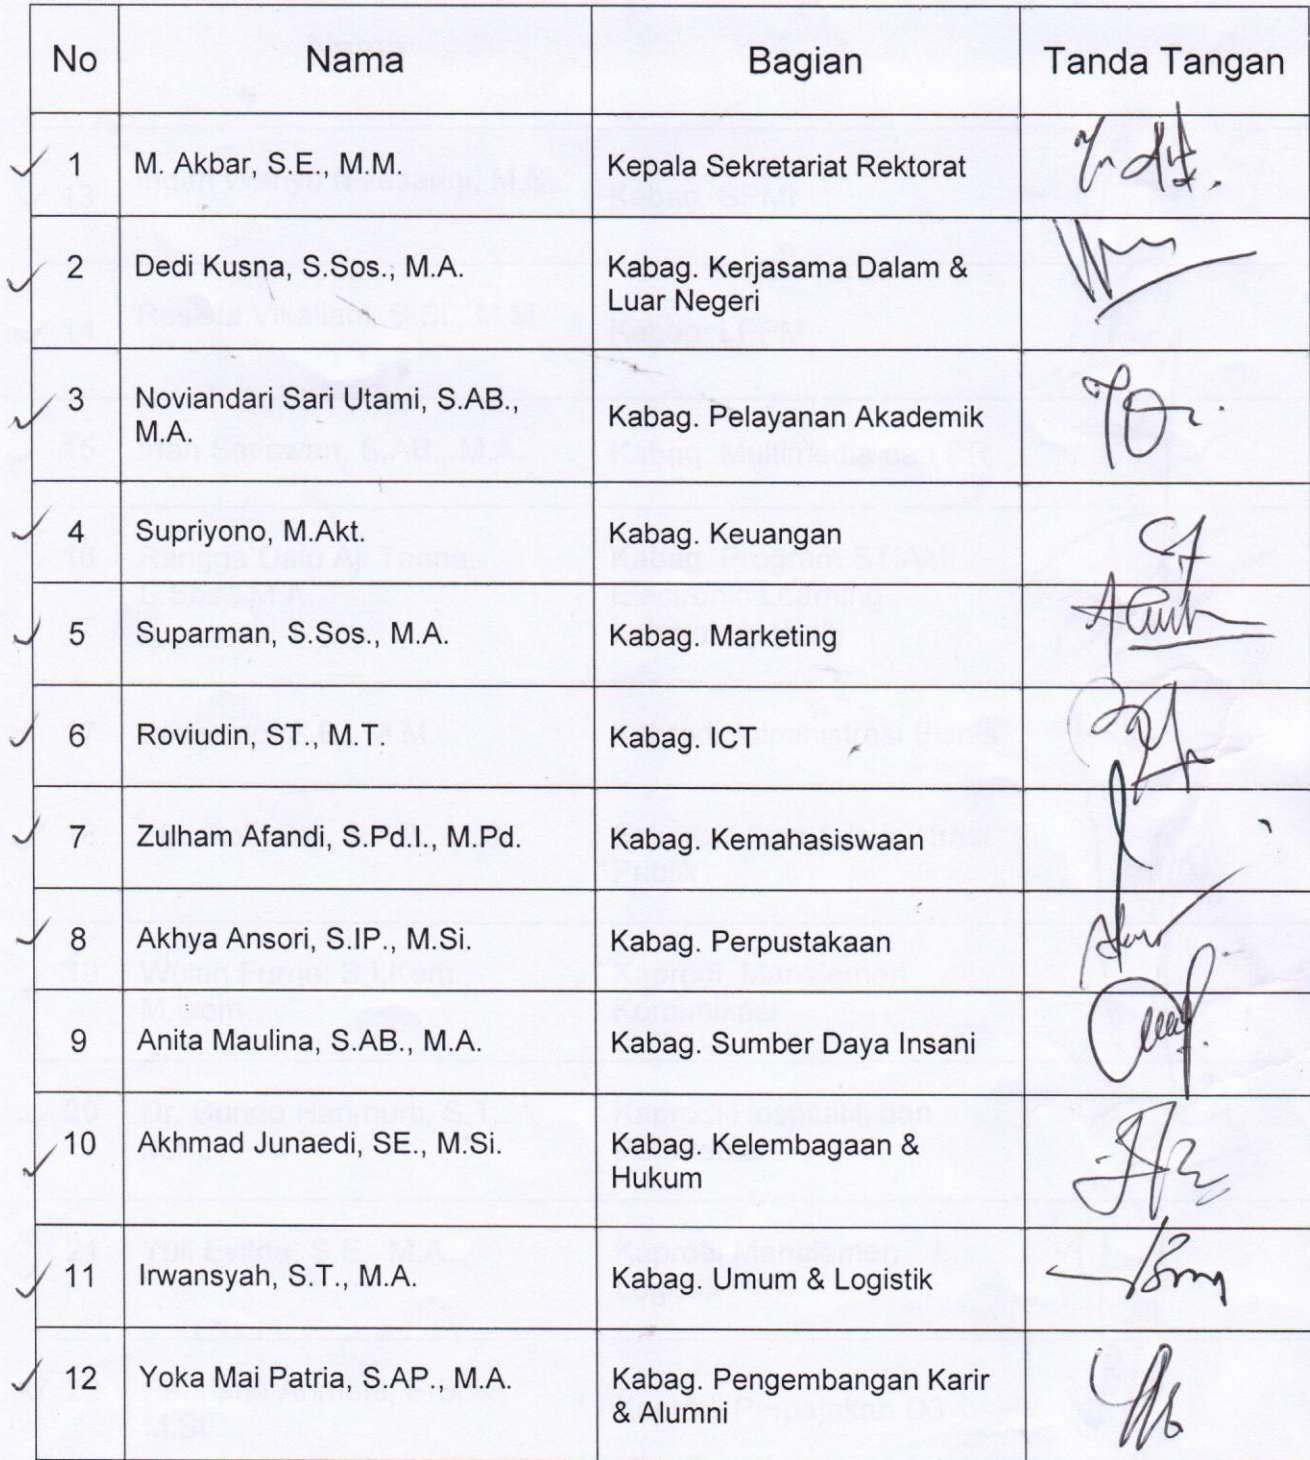 No Nama Bagian Tanda Tangan
1 M. Akbar, S.E., M.M. Kepala Sekretariat Rektorat
2 Dedi Kusna, S.Sos., M.A. Kabag. Kerjasama Dalam &
Luar Negeri
3 Noviandari Sari Utami, S.AB.,
M.A. Kabag. Pelayanan Akademik
4 Supriyono, M.Akt. Kabag. Keuangan
5 Suparman, S.Sos., M.A. Kabag. Marketing
6 Roviudin, ST., M.T. Kabag. ICT
7 Zulham Afandi, S.Pd.I., M.Pd. Kabag. Kemahasiswaan
8 Akhya Ansori, S.IP., M.Si. Kabag. Perpustakaan
9 Anita Maulina, S.AB., M.A. Kabag. Sumber Daya Insani
10 Akhmad Junaedi, SE., M.Si. Kabag. Kelembagaan &
Hukum
11 Irwansyah, S.T., M.A. Kabag. Umum & Logistik
12 Yoka Mai Patria, S.AP., M.A. Kabag. Pengembangan Karir
& Alumni